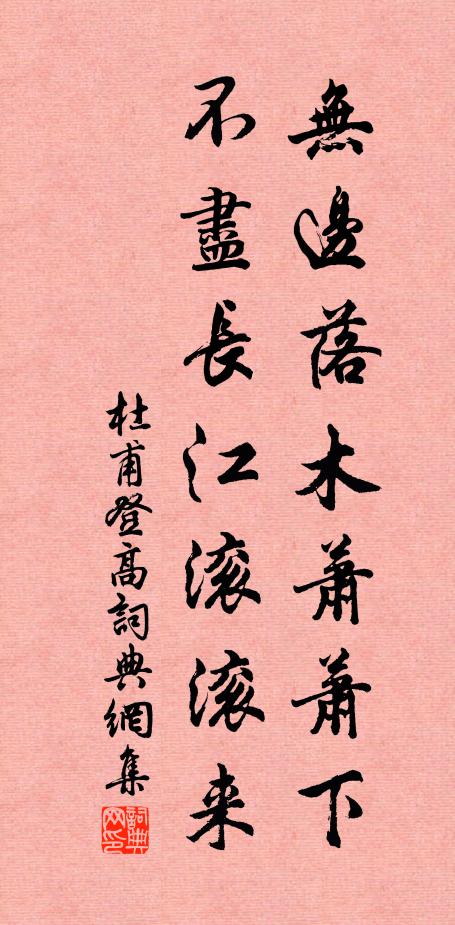 無邊落木蕭蕭下
不盡長江滚滚来
杜甫登高詞典網集
詞典网印